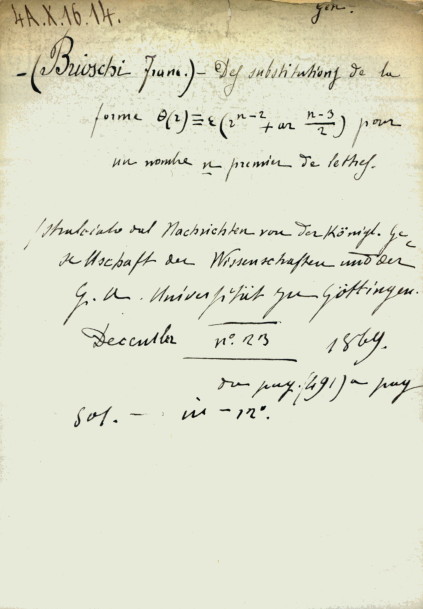 4A.X.16.14.
gen.
-(Brioschi Franc.)- Des substitutions de la
forme θ(r)≡ε(r^{n-2}+ar^{\frac{n-3}{2}}) pour
un nombre n premier de lettres.
Nachrichten von der Königl. Ge=
sellschaft der Wissenschaften und der
G. A. Universität zu Göttingen.
December n.° 23 1869.
da pag. (491) a pag
501. — in-12°.